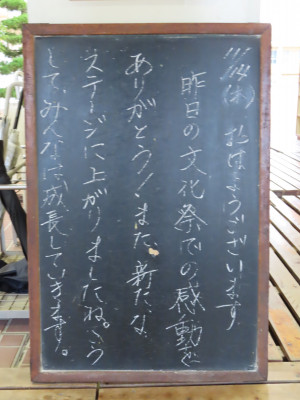 11/4(木) おはようございます
昨日の文化祭での感動を
ありがとう!また、新たな
ステージに上がりましたね。こう
して、みんなは成長していきます。